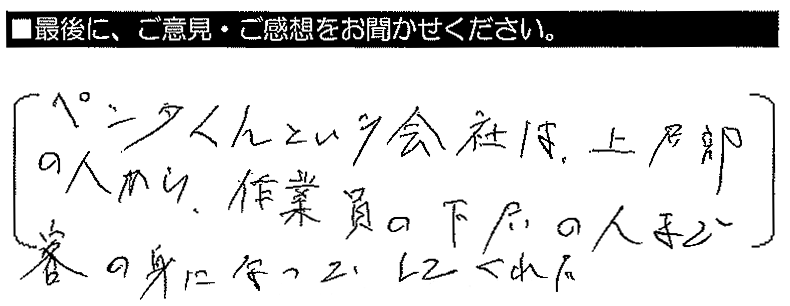 ■最後に、ご意見・ご感想をお聞かせください。
ペンタくんという会社は、上層部
の人から、作業員の下層の人まで
客の身になってしてくれた